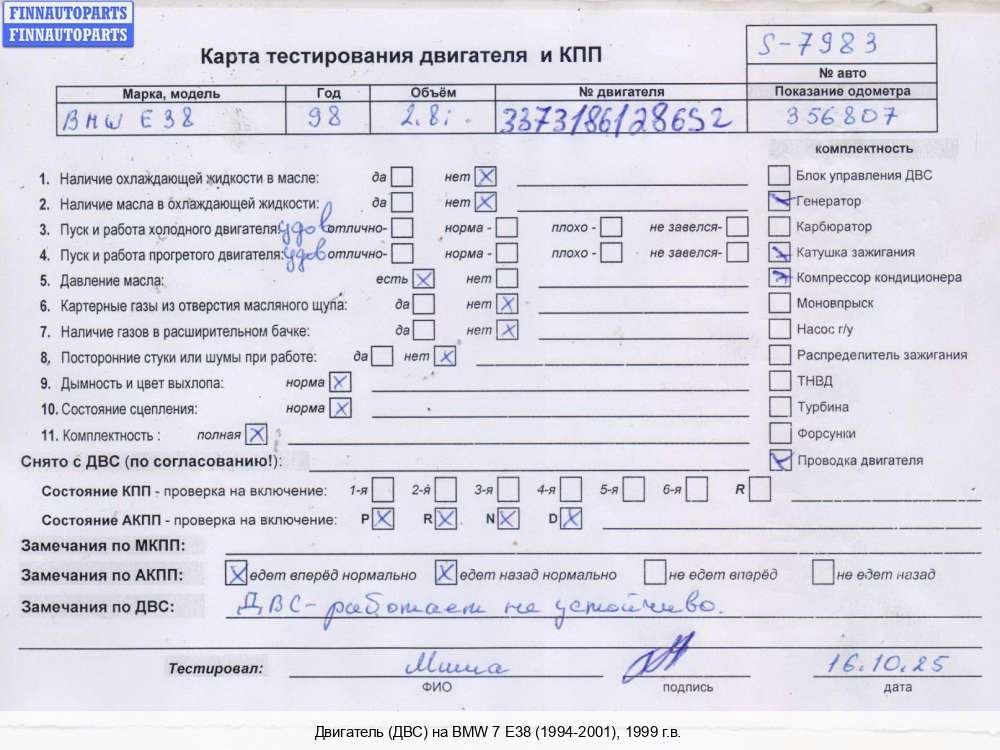 FINNAUTOPARTS
FINNAUTOPARTS
Карта тестирования двигателя и КПП
S-7983
№ авто
Марка, модель Год Объём № двигателя Показание одометра
BMW E38 98 2.8i 33731861286S2 356807
комплектность
1. Наличие охлаждающей жидкости в масле: да нет X
Блок управления ДВС
2. Наличие масла в охлаждающей жидкости: да нет X
Генератор
3. Пуск и работа холодного двигателя: удов отлично- норма - плохо - не завелся-
Карбюратор
4. Пуск и работа прогретого двигателя: удов отлично- норма - плохо - не завелся-
Катушка зажигания
5. Давление масла: есть X нет
Компрессор кондиционера
6. Картерные газы из отверстия масляного щупа: да нет X
Моновпрыск
7. Наличие газов в расширительном бачке: да нет X
Насос г/у
8, Посторонние стуки или шумы при работе: да нет X
Распределитель зажигания
9. Дымность и цвет выхлопа: норма X
ТНВД
10. Состояние сцепления: норма X
Турбина
11. Комплектность : полная X
Форсунки
Снято с ДВС (по согласованию!):
Проводка двигателя
Состояние КПП - проверка на включение: 1-я 2-я 3-я 4-я 5-я 6-я R
Состояние АКПП - проверка на включение: P X R X N X D X
Замечания по МКПП:
Замечания по АКПП: X едет вперёд нормально X едет назад нормально не едет вперёд не едет назад
Замечания по ДВС: ДВС - работает не устойчиво.
Тестировал: Миша 16.10.25
ФИО подпись дата
Двигатель (ДВС) на BMW 7 E38 (1994-2001), 1999 г.в.